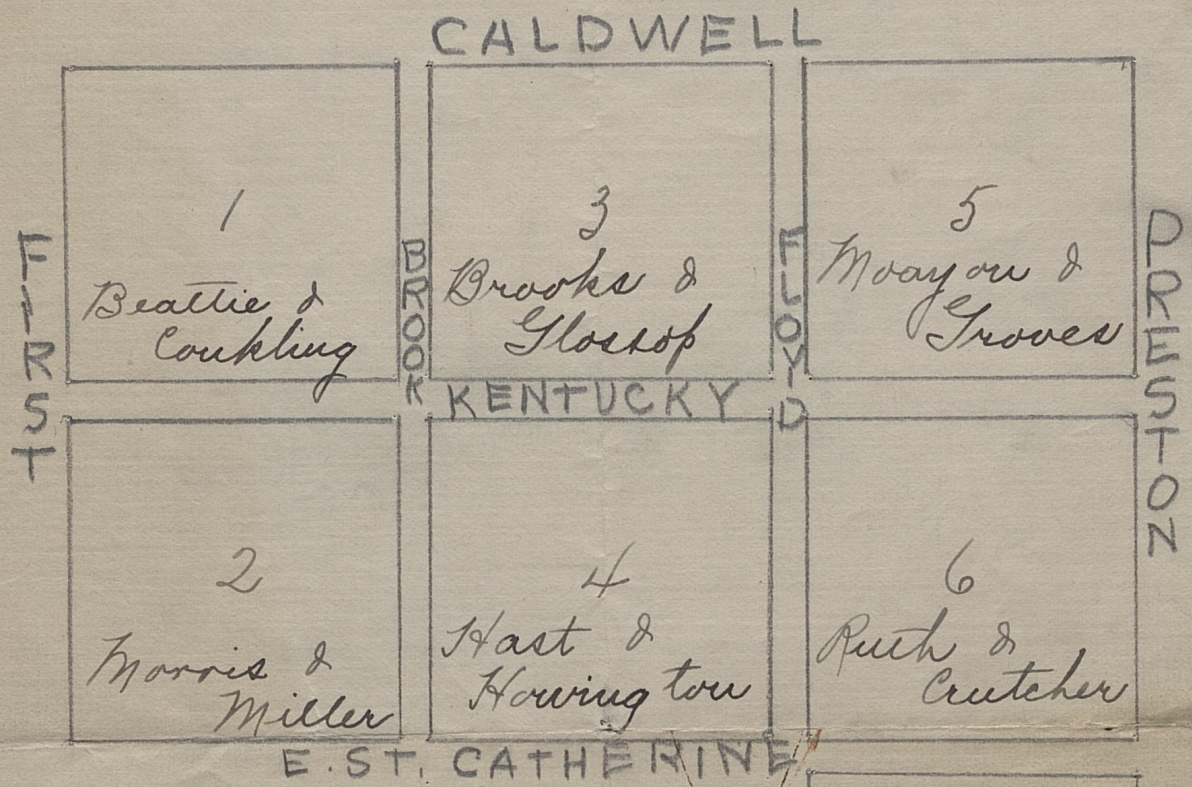 CALDWELL
FIRST
1
Beattie &
Conkling
BROOK
3
Brooks &
Glossop
FLOYD
5
Moayon &
Groves
PRESTON
KENTUCKY
2
Morris &
Miller
4
Hast &
Howington
6
Ruth &
Crutcher
E. ST. CATHERINE